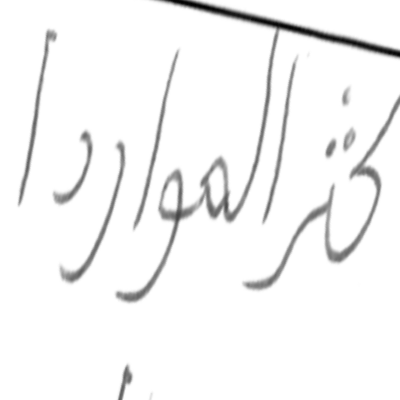 كثر الموارد ا